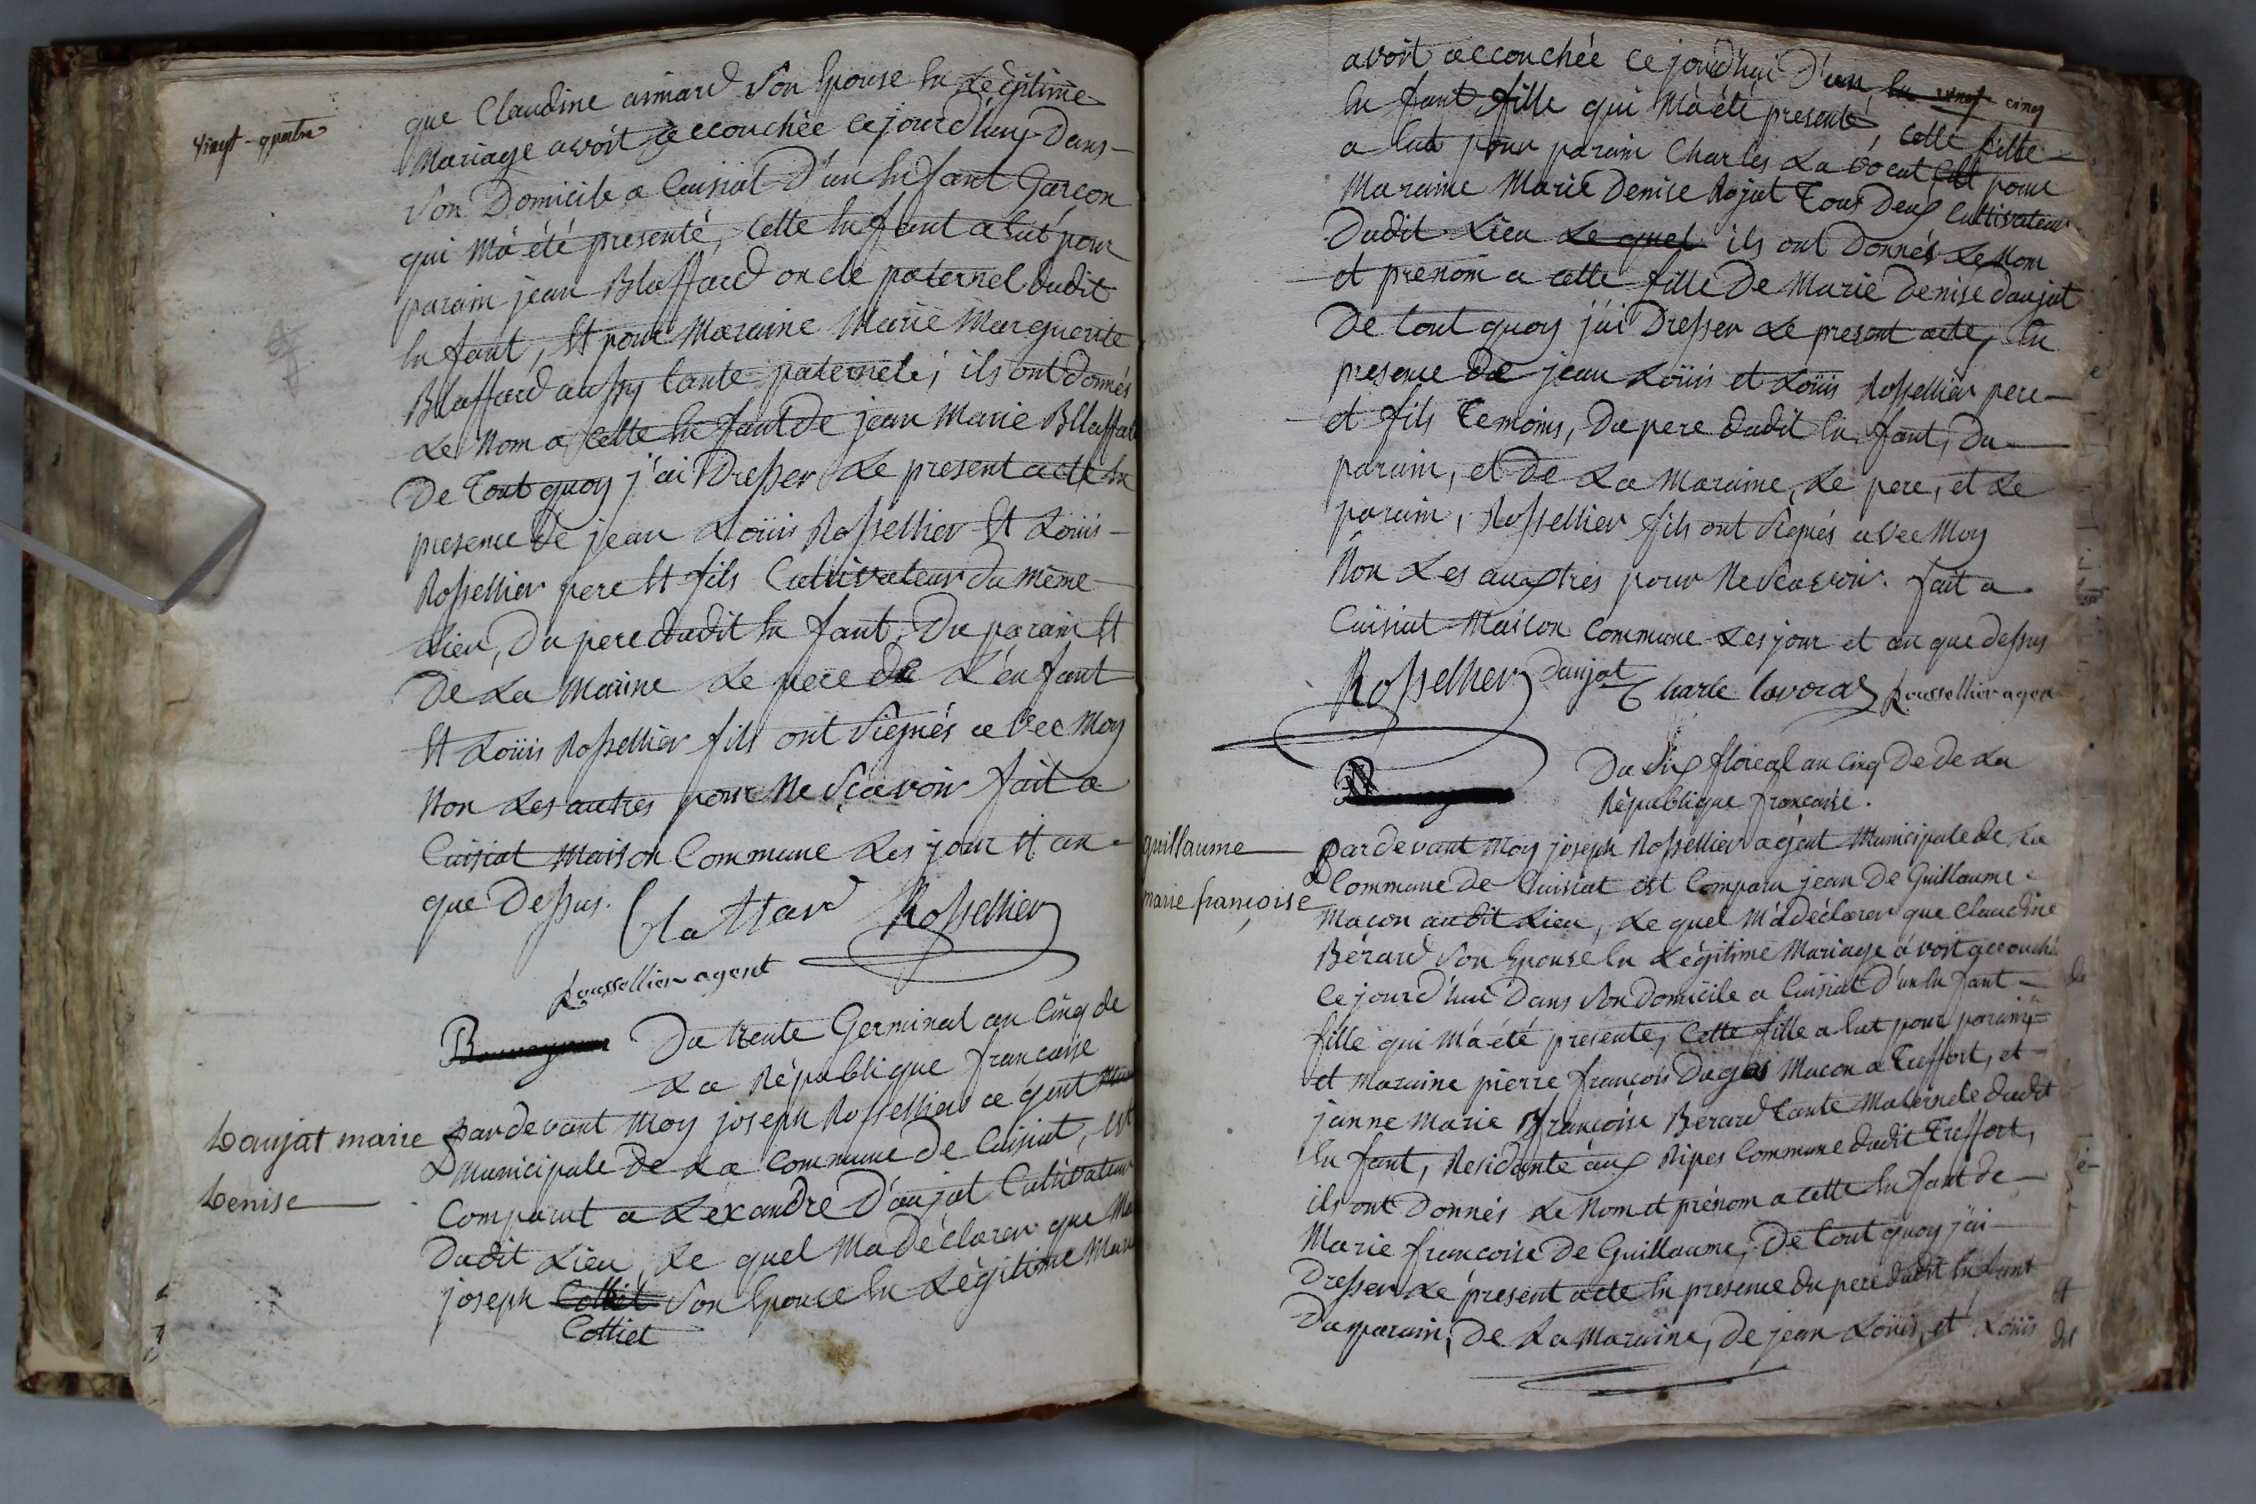 vingt-quatre
que Claudine aimard son Epouse En Légitime
Mariage avoit accouchée cejourd'huy Dans
son Domicile a Cuisiat D'un Enfant Garçon
qui M'a été presenté, Cette Enfant a Eut pour
parain jean Blattard oncle paternel dudit
Enfant, Et pour Maraine Marie Marguerite
Blattard aussy tante paternele; ils ont donnés
Le Nom a Cette Enfant de jean Marie Bllattard
De Tout quoy j'ai Dresser Le present acte En
presence de jean Loüis Rossellier Et Loüis
Rossellier pere Et fils Cultivateur du même
Lieu, Du pere dudit Enfant, Du parain Et
De La Marine Le pere de L'enfant
Et Loüis Rossellier fils ont signés avec Moy
Non Les autres pour Ne Sçavoir fait a
Cuisiat Maison Commune Les jour Et an
que Dessus.
Blattard Rossellier
Roussellier agent
Du trente Germinal an Cinq de
La République francaise
Daujat marie
Denise
pardevant Moy joseph Rossellier agent
Municipale De La Commune De Cuisiat, est
Comparut aLexandre D'aujat Cultivateur
Dudit Lieu, Le quel Ma déclarer que
joseph Colliet son Epouce En Légitime
Colliet
avoit accouchée Cejourd'hui D'un En vingt cinq
Enfant fille qui M'a été presenté, Cette fille
a Eut pour parain Charles La vocat Et pour
Maraine Marie Denise Rojat Tous Deux Cultivateur
Dudit Lieu Le quel ils ont Donnés Le Nom
et prenom a cette fille De Marie Denise daujat
De tout quoy j'ai Dresser Le present acte, En
presence de jean Loüis et Loüis Rossellier pere
et fils Temoins, Du pere dudit Enfant, Du
parain, et De La Maraine, Le pere, et Le
parain, Rossellier fils ont signés avec Moy
Non Les auxtres pour Ne Scavoir. fait a
Cuisiat Maison Commune Les jour et an que dessus
Rossellier Daujat Charle lavocat Roussellier agen
Du dix floreal an Cinq De de La
République francaise.
guillaume
marie françoise
Pardevant Moy joseph Rossellier agent Municipale de La
Commune de Cuisiat est Comparu jean De Guillaume
Macon audit Lieu, Le quel M'a déclarer que Claudine
Bérard son Epouse En Légitime Mariage avoit accouché
Cejourd'hui Dans son domicile a Cuisiat D'un Enfant
fille qui M'a été presente, Cette fille a Eut pour parain
et Maraine pierre françois Dagas Macon a Treffort, et
janne Marie françoise Berard tante Maternele dudit
Enfant, Residante aux Ripes Commune dudit Treffort,
ils ont Donnés Le Nom et prénom a cette Enfant de
Marie françoise De Guillaume, De tout quoy j'ai
Dresser Le présent acte En presence du pere dudit Enfant
Du parain, De La Maraine, de jean Loüis, et Loüis